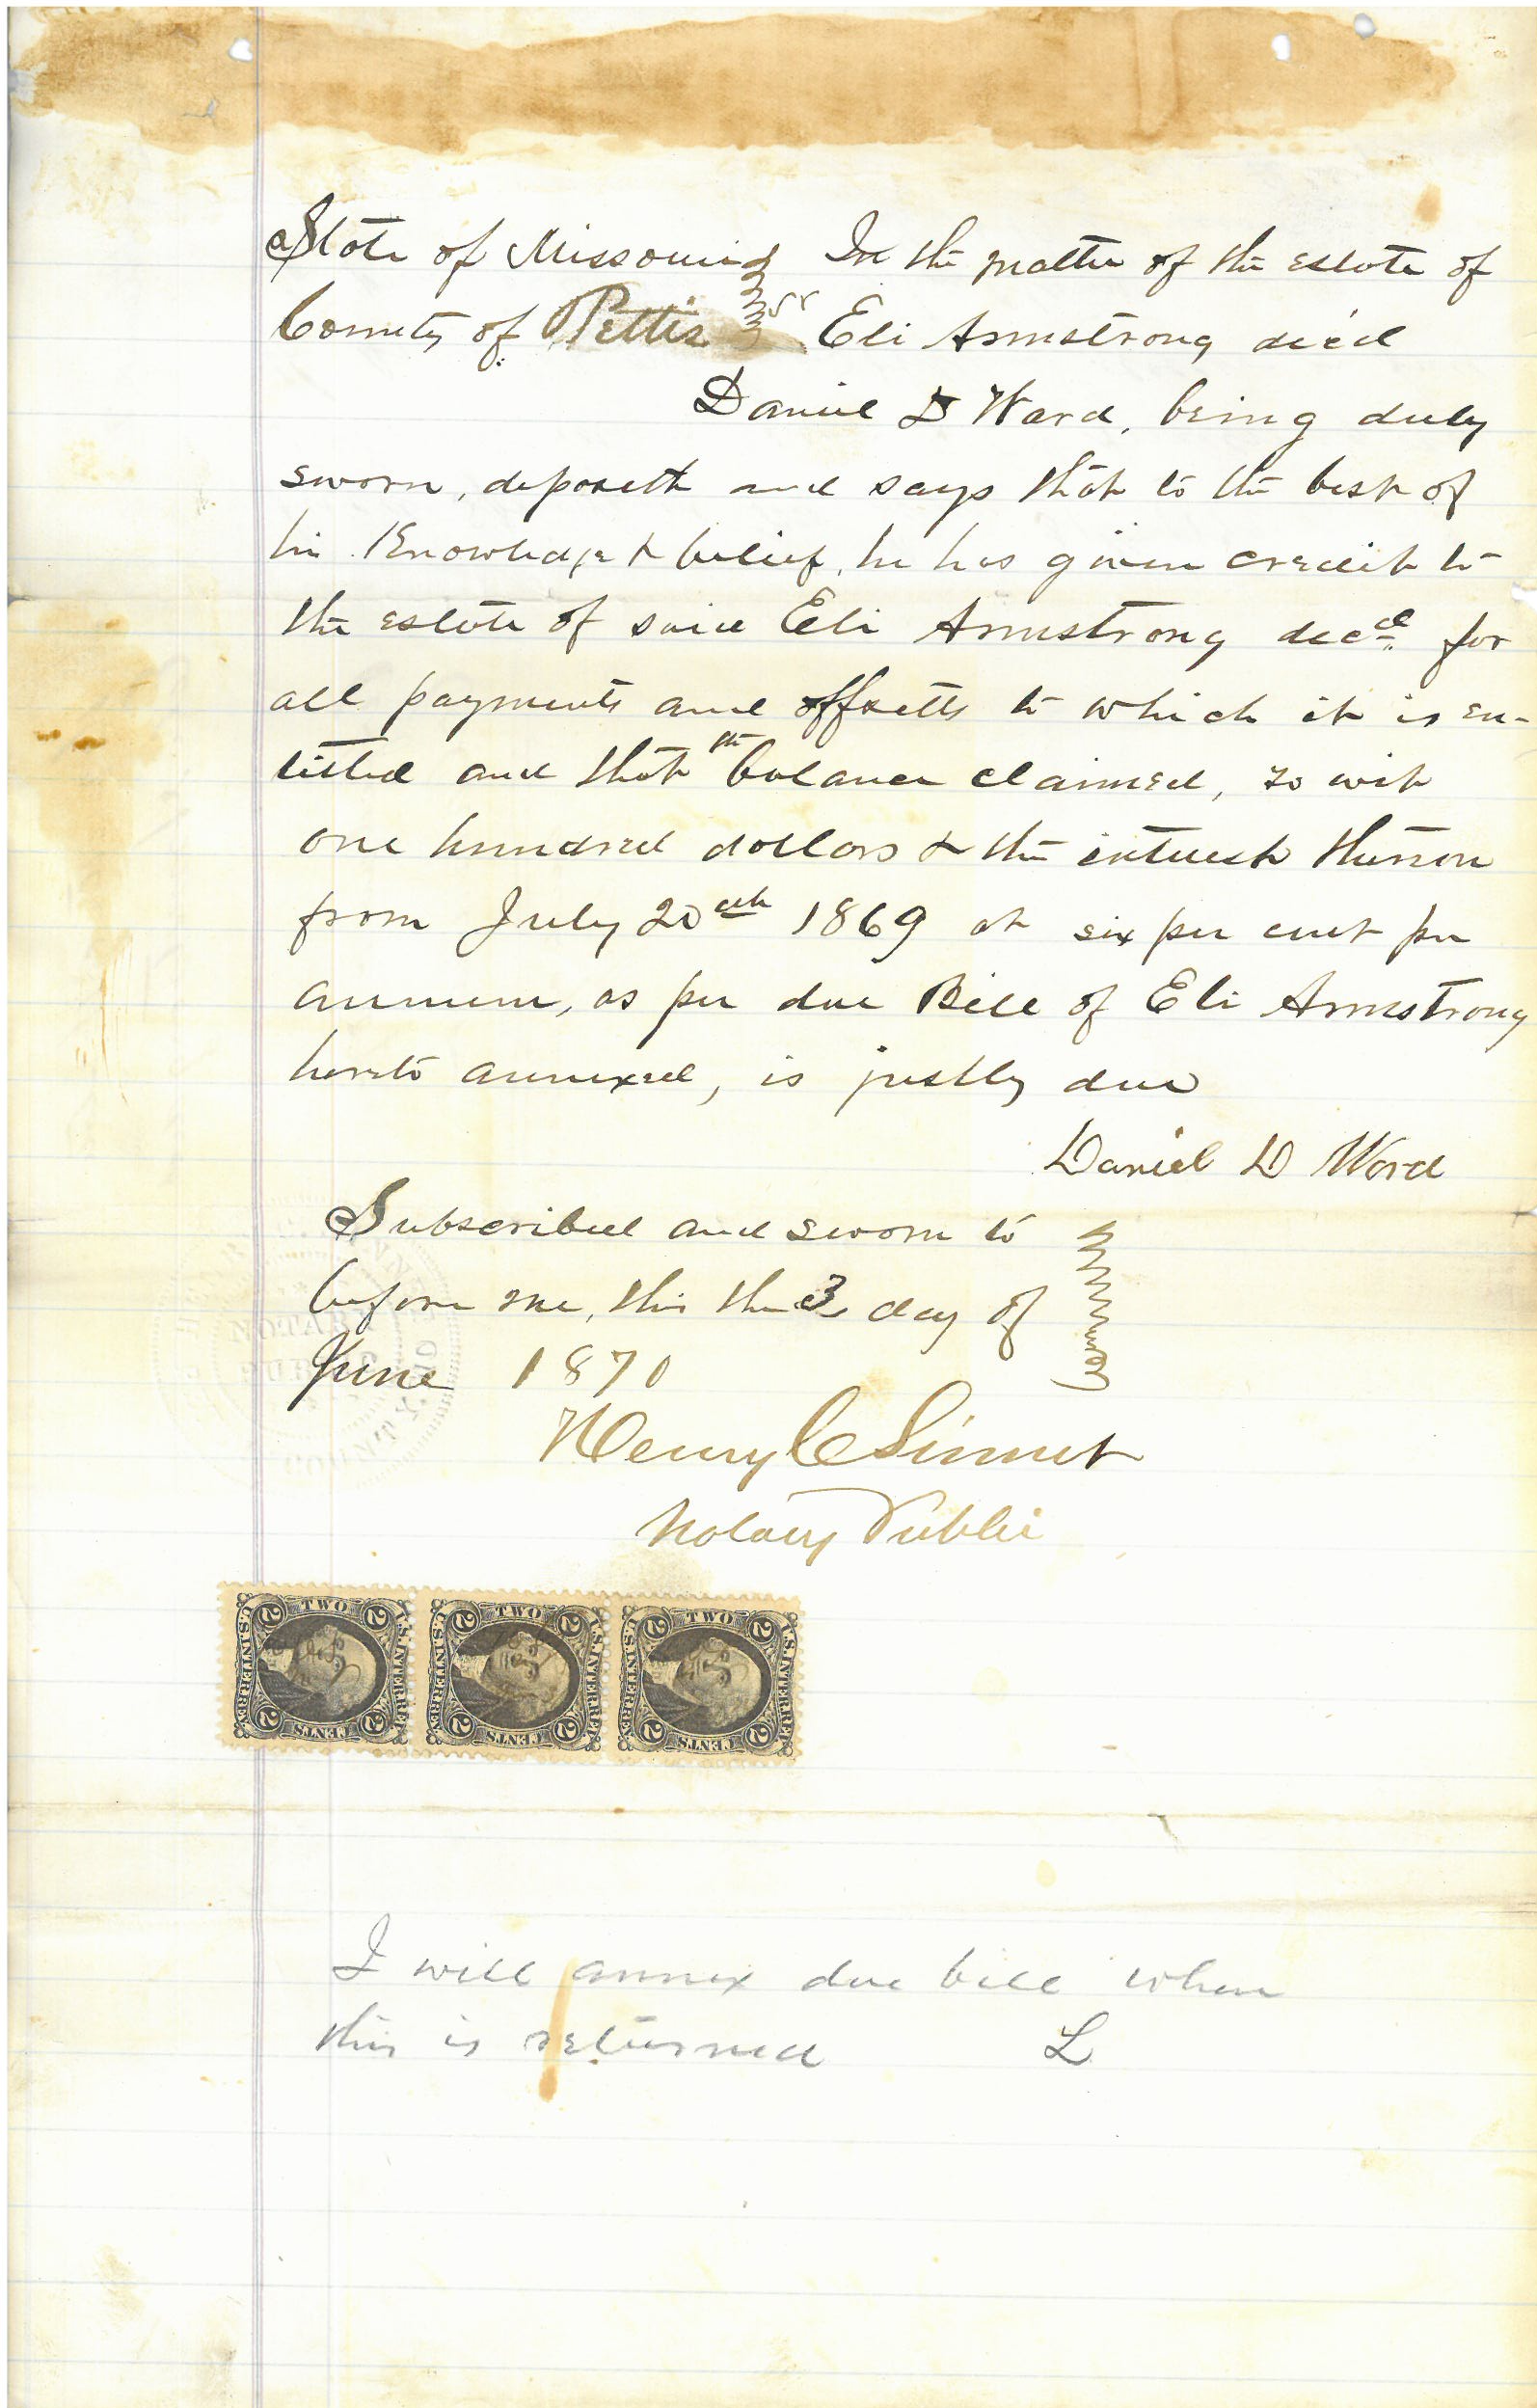 State of Missouri } ss In the matter of the estate of
County of Pettis } Eli Armstrong dec'd
Daniel D Ward, being duly
sworn, deposeth and says that to the best of
his Knowledge & belief, he has given credit to
the estate of said Eli Armstrong decd for
all payments and offsetts to which it is en-
titled and that the balance claimed, to wit
one hundred dollars & the interest thereon
from July 20th 1869 at six per cent per
annum, as per due Bill of Eli Armstrong
hereto annexed, is justly due
Daniel D Ward
Subscribed and sworn to
before me, this the 3 day of
June 1870
Henry C Sinnet
Notary Public
TWO TWO TWO
2 2 2 2 2 2
U.S. INTER. REV. U.S. INTER. REV. U.S. INTER. REV.
2 2 2 2 2 2
CENTS CENTS CENTS
I will annex due bill when
this is returned L